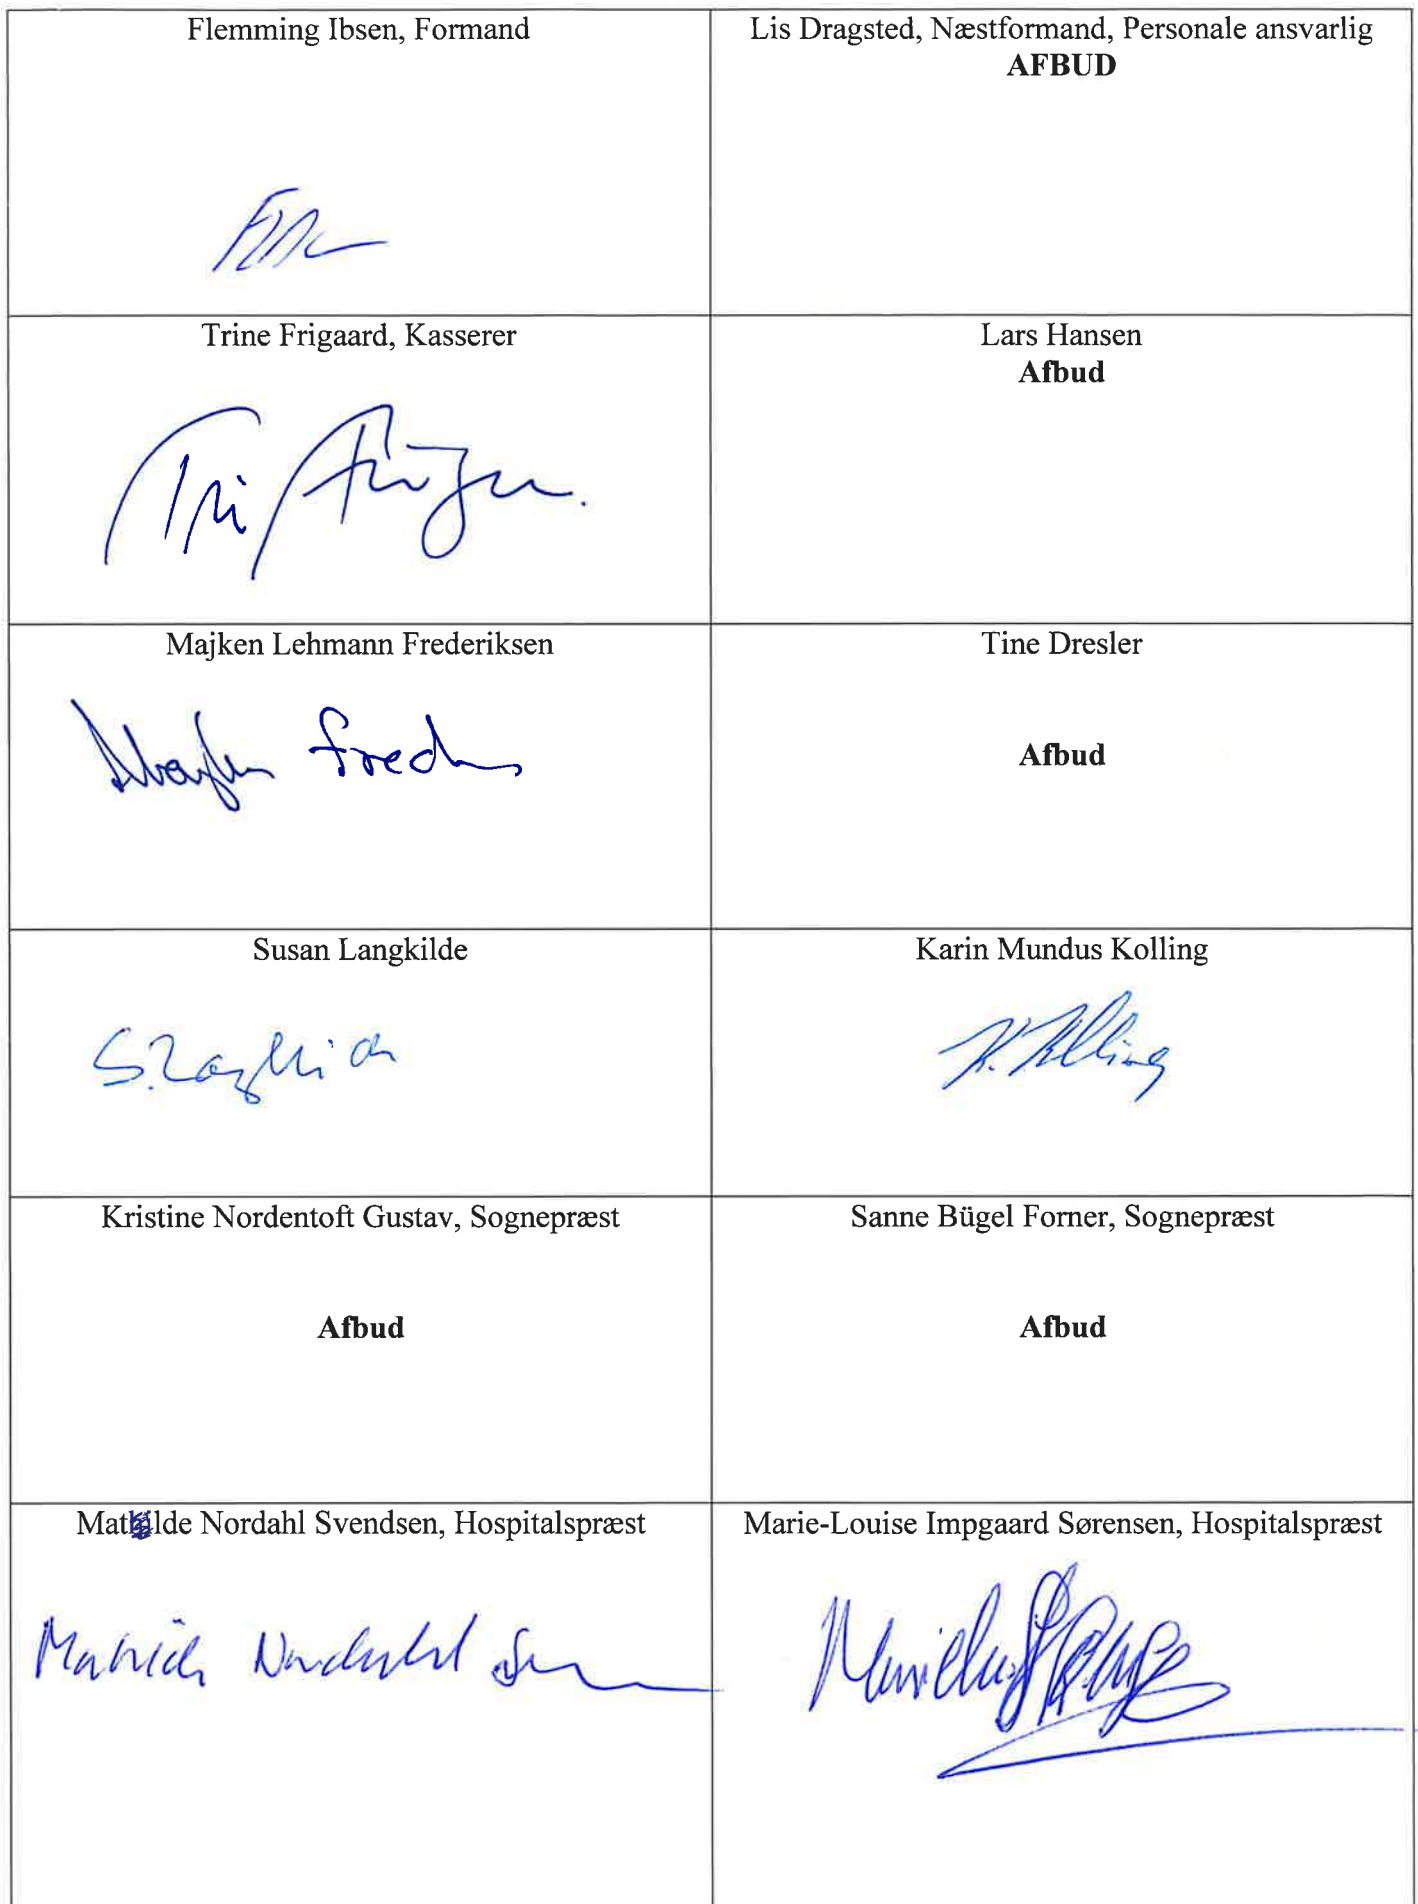 Flemming Ibsen, Formand
Lis Dragsted, Næstformand, Personale ansvarlig
AFBUD
Trine Frigaard, Kasserer
Lars Hansen
Afbud
Majken Lehmann Frederiksen
Tine Dresler
Afbud
Susan Langkilde
Karin Mundus Kolling
K. Kolling
Kristine Nordentoft Gustav, Sognepræst
Afbud
Sanne Bügel Forner, Sognepræst
Afbud
Matilde Nordahl Svendsen, Hospitalspræst
Matilde Nordahl
Marie-Louise Impgaard Sørensen, Hospitalspræst